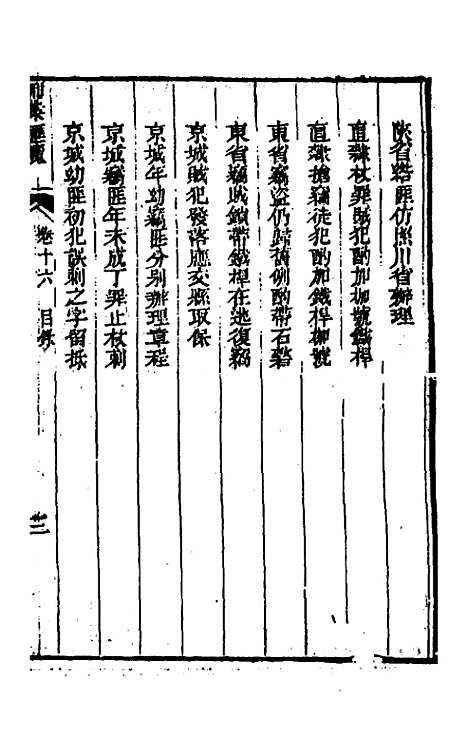 陝省啯匪仿照川省辦理
直隸杖罪賊犯酌加枷號鐵桿
直隸搶竊徒犯酌加鐵桿枷號
東省竊盜仍歸舊例酌帶石礅
東省竊賊鎖帶鐵桿在逃復竊
京城賊犯發落應交縣取保
京城年幼竊匪分别辦理章程
京城竊匪年未成丁罪止杖刺
京城幼匪初犯誤刺之字留抵
卷十六 目錄